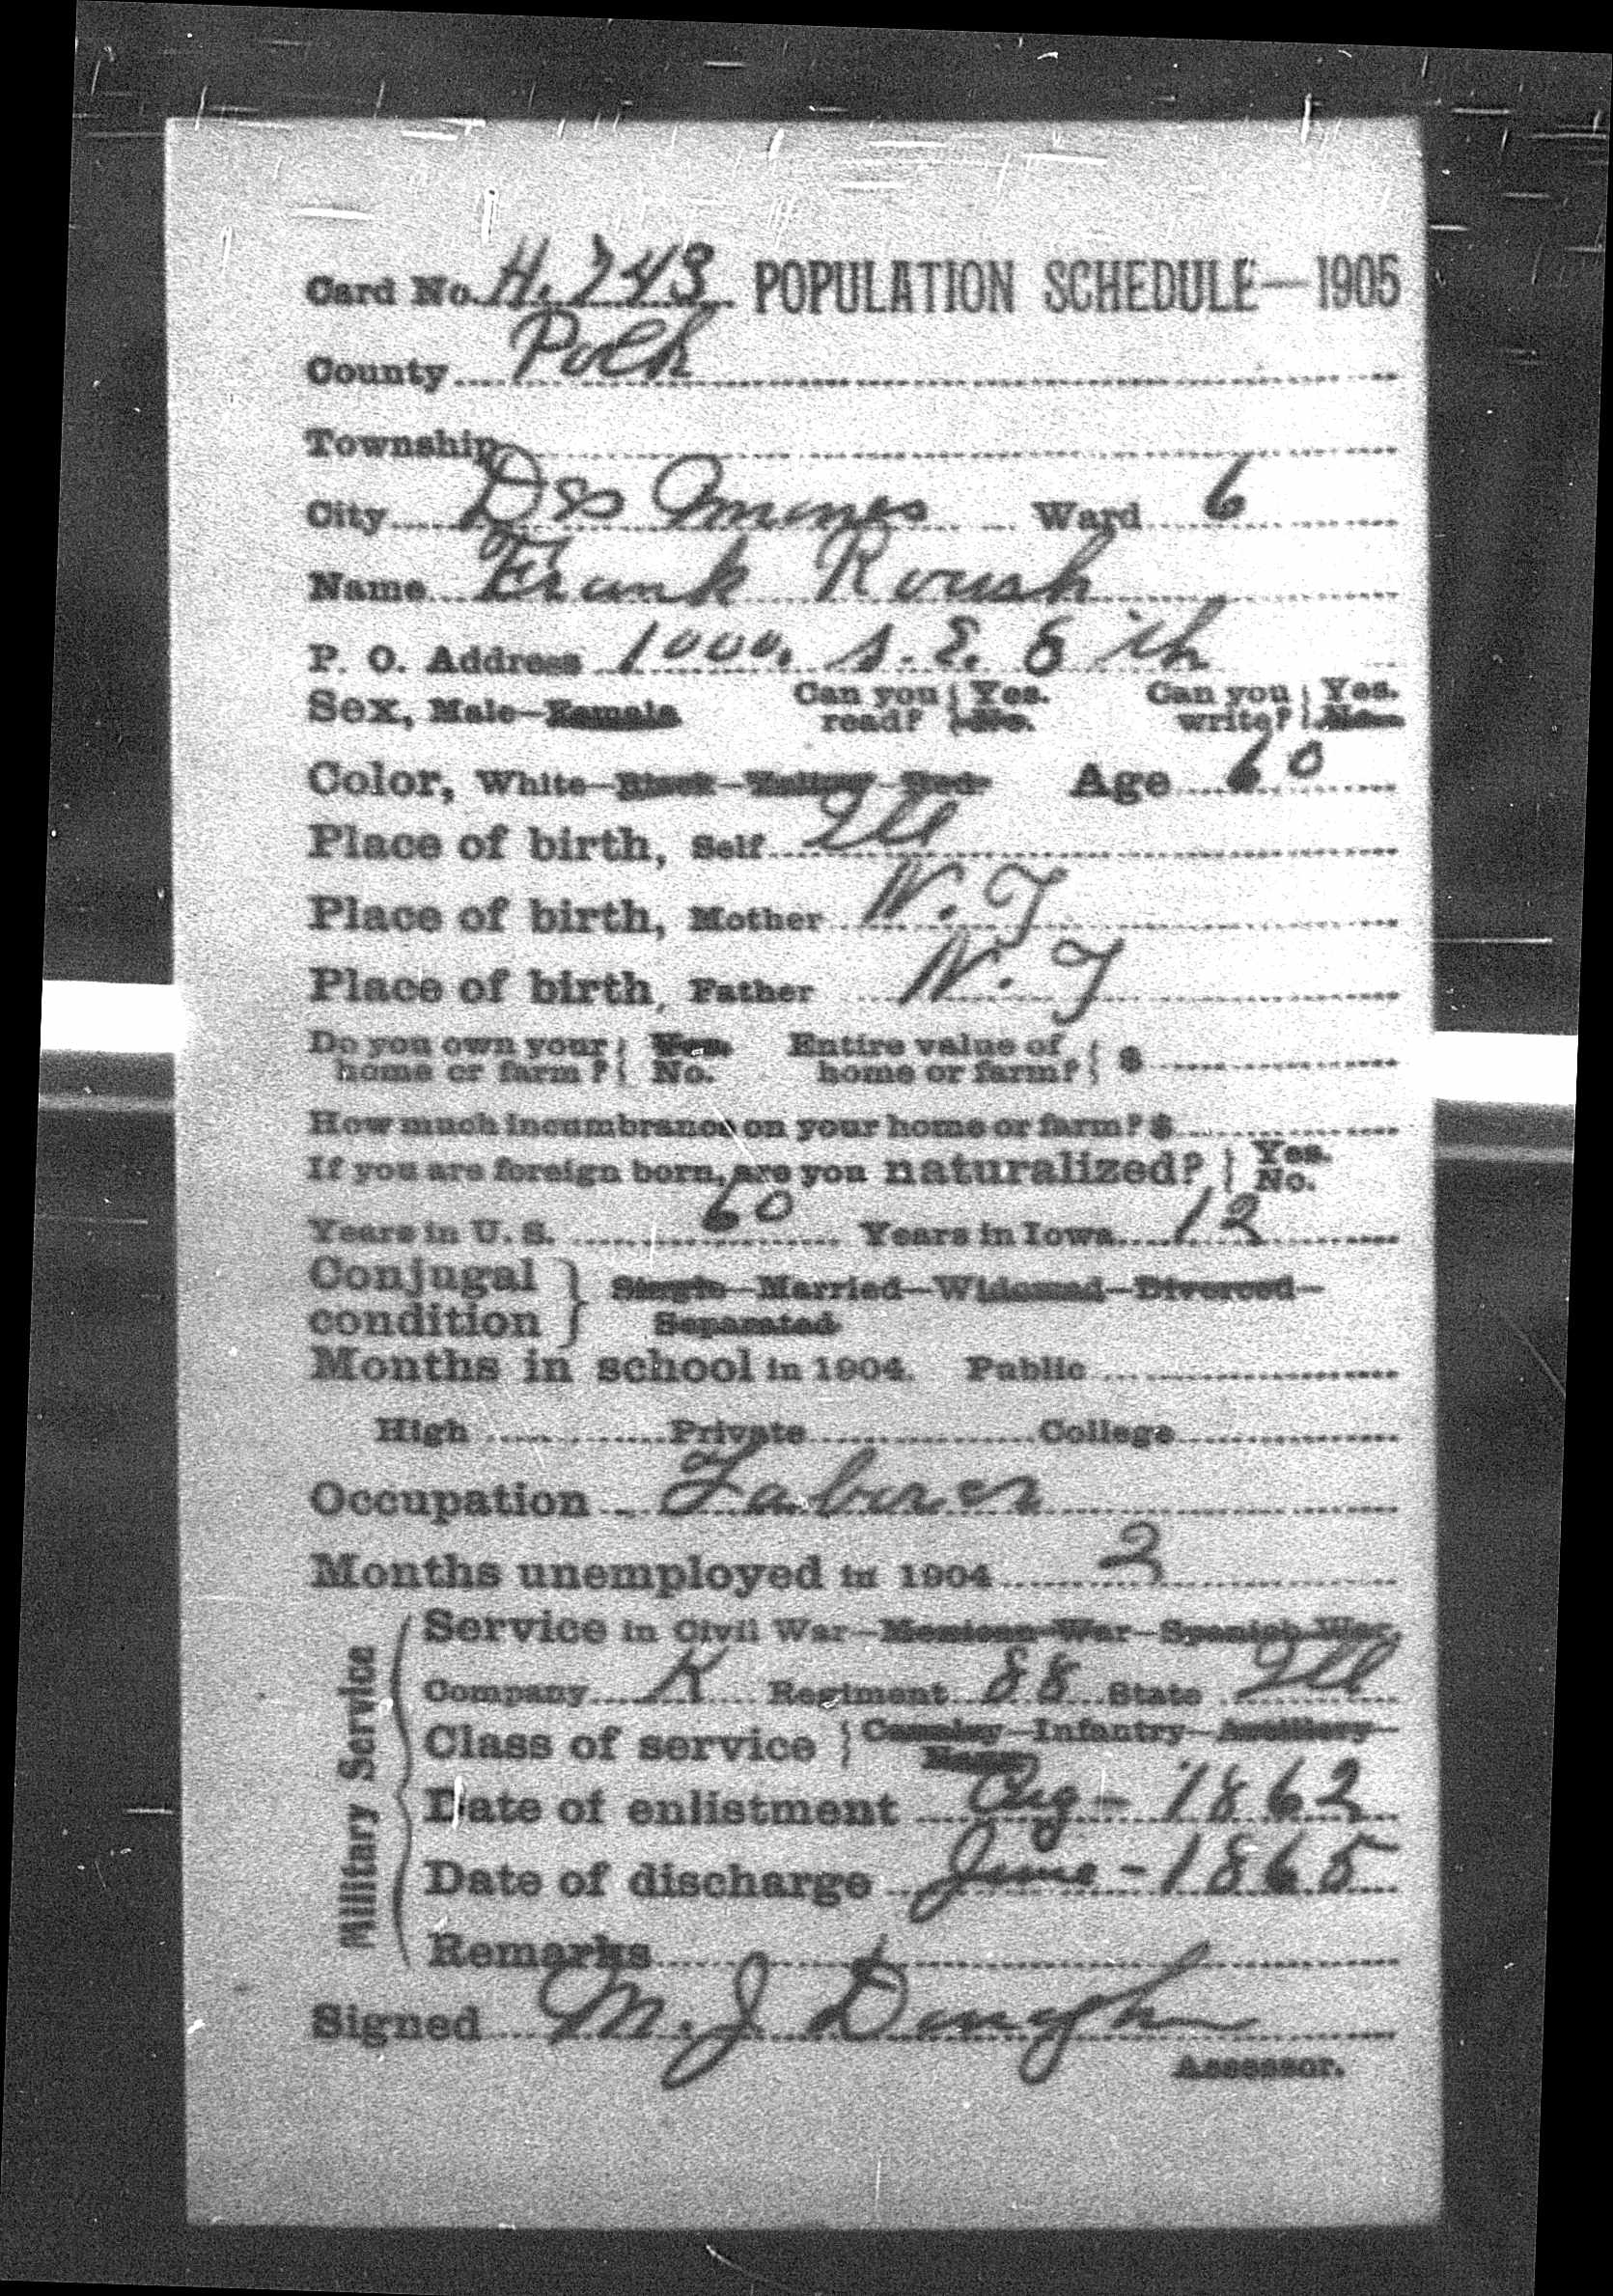 Card No. H. 743 POPULATION SCHEDULE—1905
County Polk
Township
City Des Moines Ward 6
Name Frank Roush
P. O. Address 1000, S. E. 6 th
Sex, Male—Female Can you read? Yes. No. Can you write? Yes. No.
Color, White—Black—Yellow—Red Age 60
Place of birth, Self Ill
Place of birth, Mother
Place of birth, Father
Do you own your home or farm? Yes. No. Entire value of home or farm? $
How much incumbrance on your home or farm? $
If you are foreign born, are you naturalized? Yes. No.
Years in U. S. 60 Years in Iowa 12
Conjugal condition Single—Married—Widowed—Divorced—
Separated
Months in school in 1904. Public
High Private College
Occupation Laborer
Months unemployed in 1904 2
Military Service
Service in Civil War—Mexican War—Spanish War
Company K Regiment 88 State Ill
Class of service Cavalry—Infantry—Artillery—
Navy
Date of enlistment Aug - 1862
Date of discharge June - 1865
Remarks
Signed M. J.
Assessor.